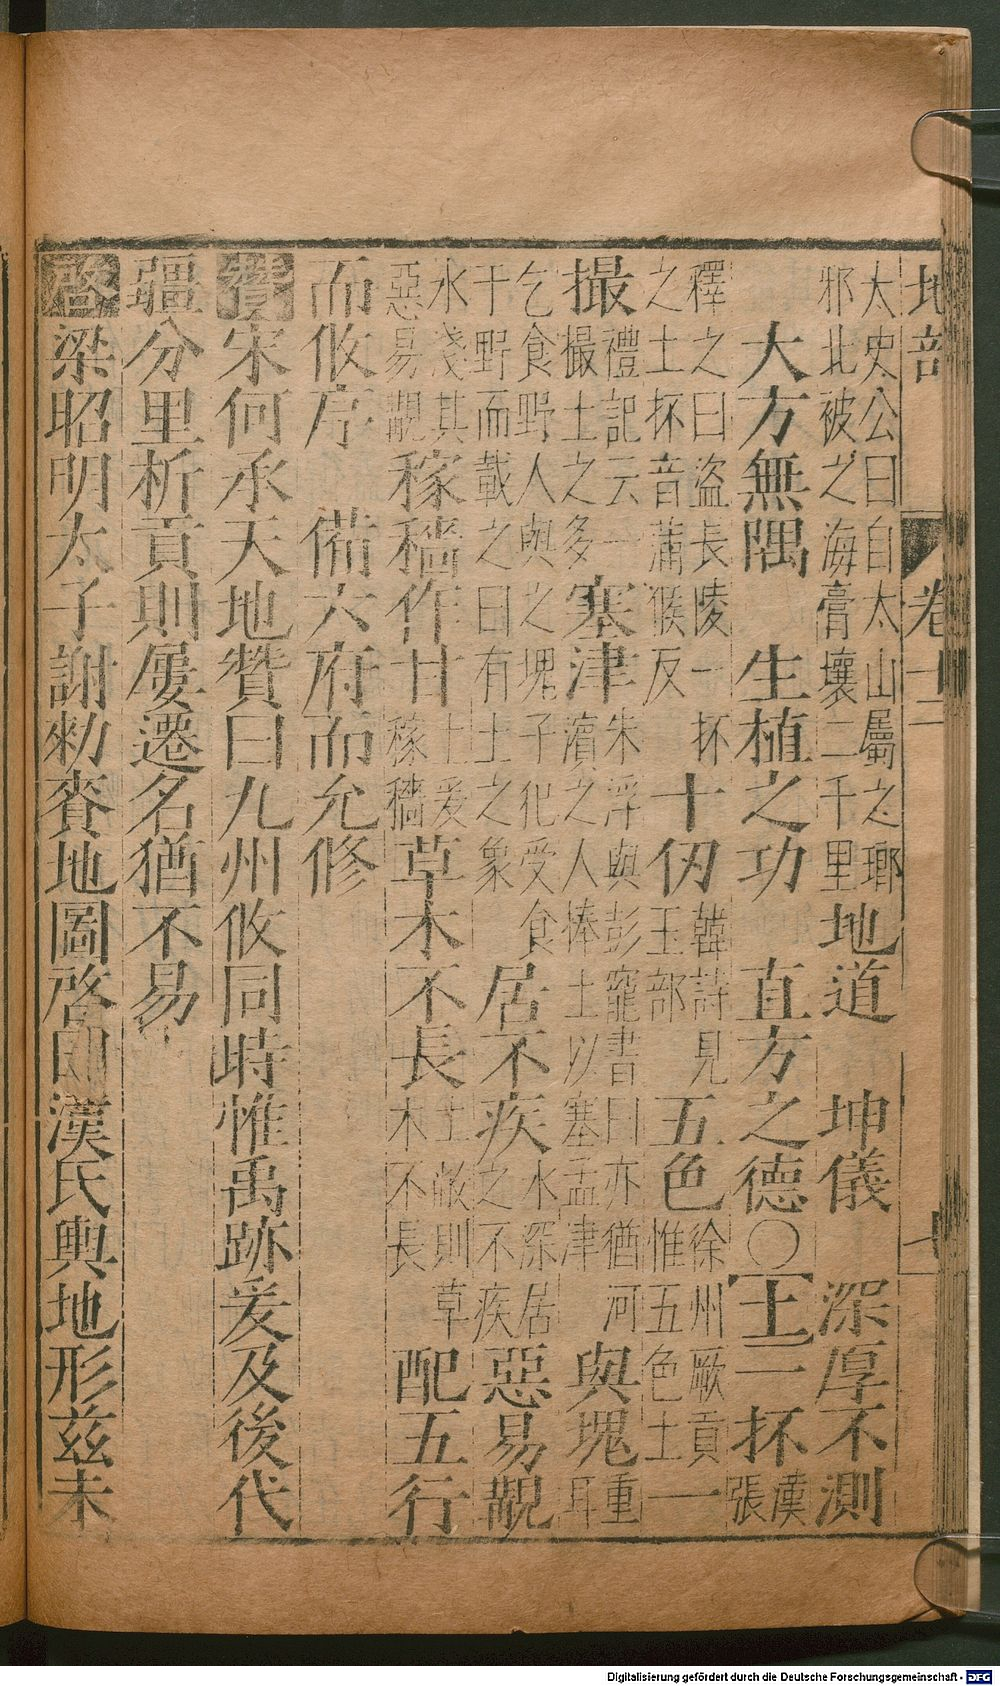 地部 卷十二 七
太史公曰自太山屬之瑯
邪北被之海膏壤二千里 地道 坤儀 深厚不測
大方無隅 生植之功 直方之德〇土 一抔 漢
張
釋之曰盜長陵一抔
之土抔音蒲猴反 十仞 韓詩見
玉部 五色 徐州厥貢
惟五色土 一
撮 禮記云一
撮土之多 塞津 朱浮與彭寵書曰亦猶河
濱之人捧土以塞孟津 與塊 重
耳
乞食野人與之塊子犯受食
于野而載之曰有土之象 居不疾 水深居
之不疾 惡易覯
水淺其
惡易覯 稼穡作甘 土爰
稼穡 草木不長 土敝則草
木不長 配五行
而攸序 備六府而允修
贊宋何承天地贊曰九州攸同時惟禹跡爰及後代
疆分里析貢則屢遷名猶不易
啓梁昭明太子謝勑賚地圖啓曰漢氏輿地形兹未
Digitalisierung gefördert durch die Deutsche Forschungsgemeinschaft - DFG